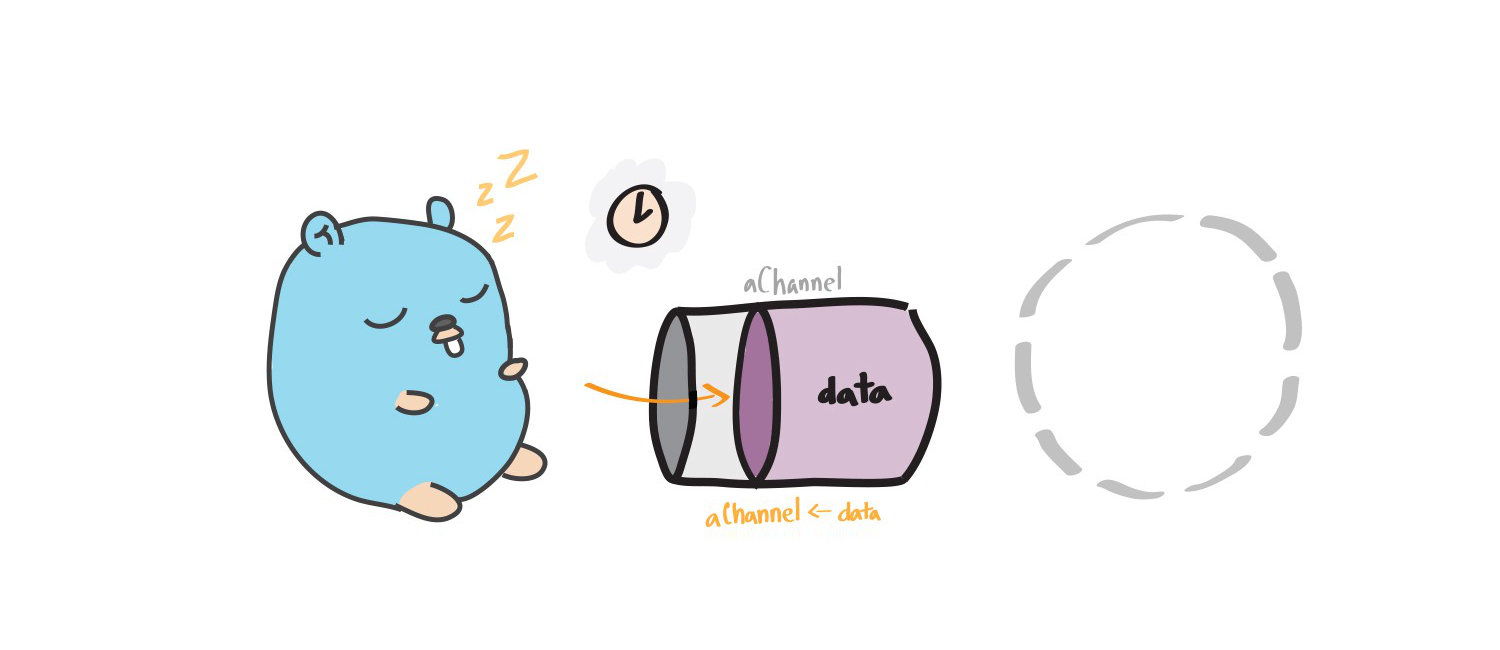 z Z
z
aChannel
data
aChannel ← data